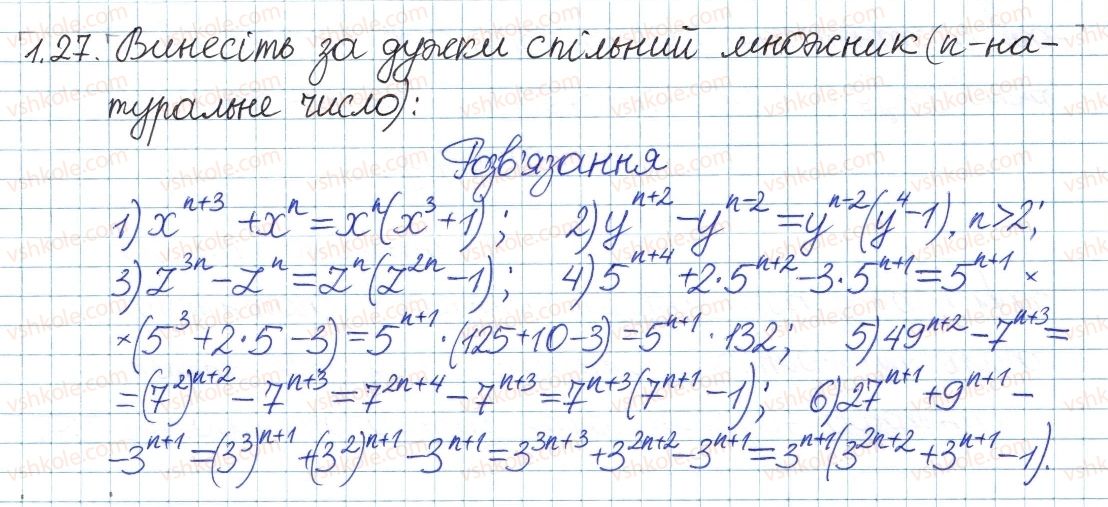 1.27. Винесіть за дужки спільний множник (n-на-
туральне число):
Розв'язання
1) x^{n+3} + x^n = x^n(x^3+1); 2) y^{n+2} - y^{n-2} = y^{n-2}(y^4-1), n>2;
3) z^{3n} - z^n = z^n(z^{2n}-1); 4) 5^{n+4} + 2·5^{n+2} - 3·5^{n+1} = 5^{n+1} ×
×(5^3 + 2·5 - 3) = 5^{n+1} · (125+10-3) = 5^{n+1} · 132; 5) 49^{n+2} - 7^{n+3} =
= (7^2)^{n+2} - 7^{n+3} = 7^{2n+4} - 7^{n+3} = 7^{n+3}(7^{n+1}-1); 6) 27^{n+1} + 9^{n+1} -
-3^{n+1} = (3^3)^{n+1} + (3^2)^{n+1} - 3^{n+1} = 3^{3n+3} + 3^{2n+2} - 3^{n+1} = 3^{n+1}(3^{2n+2} + 3^{n+1} - 1).
vshkole.com